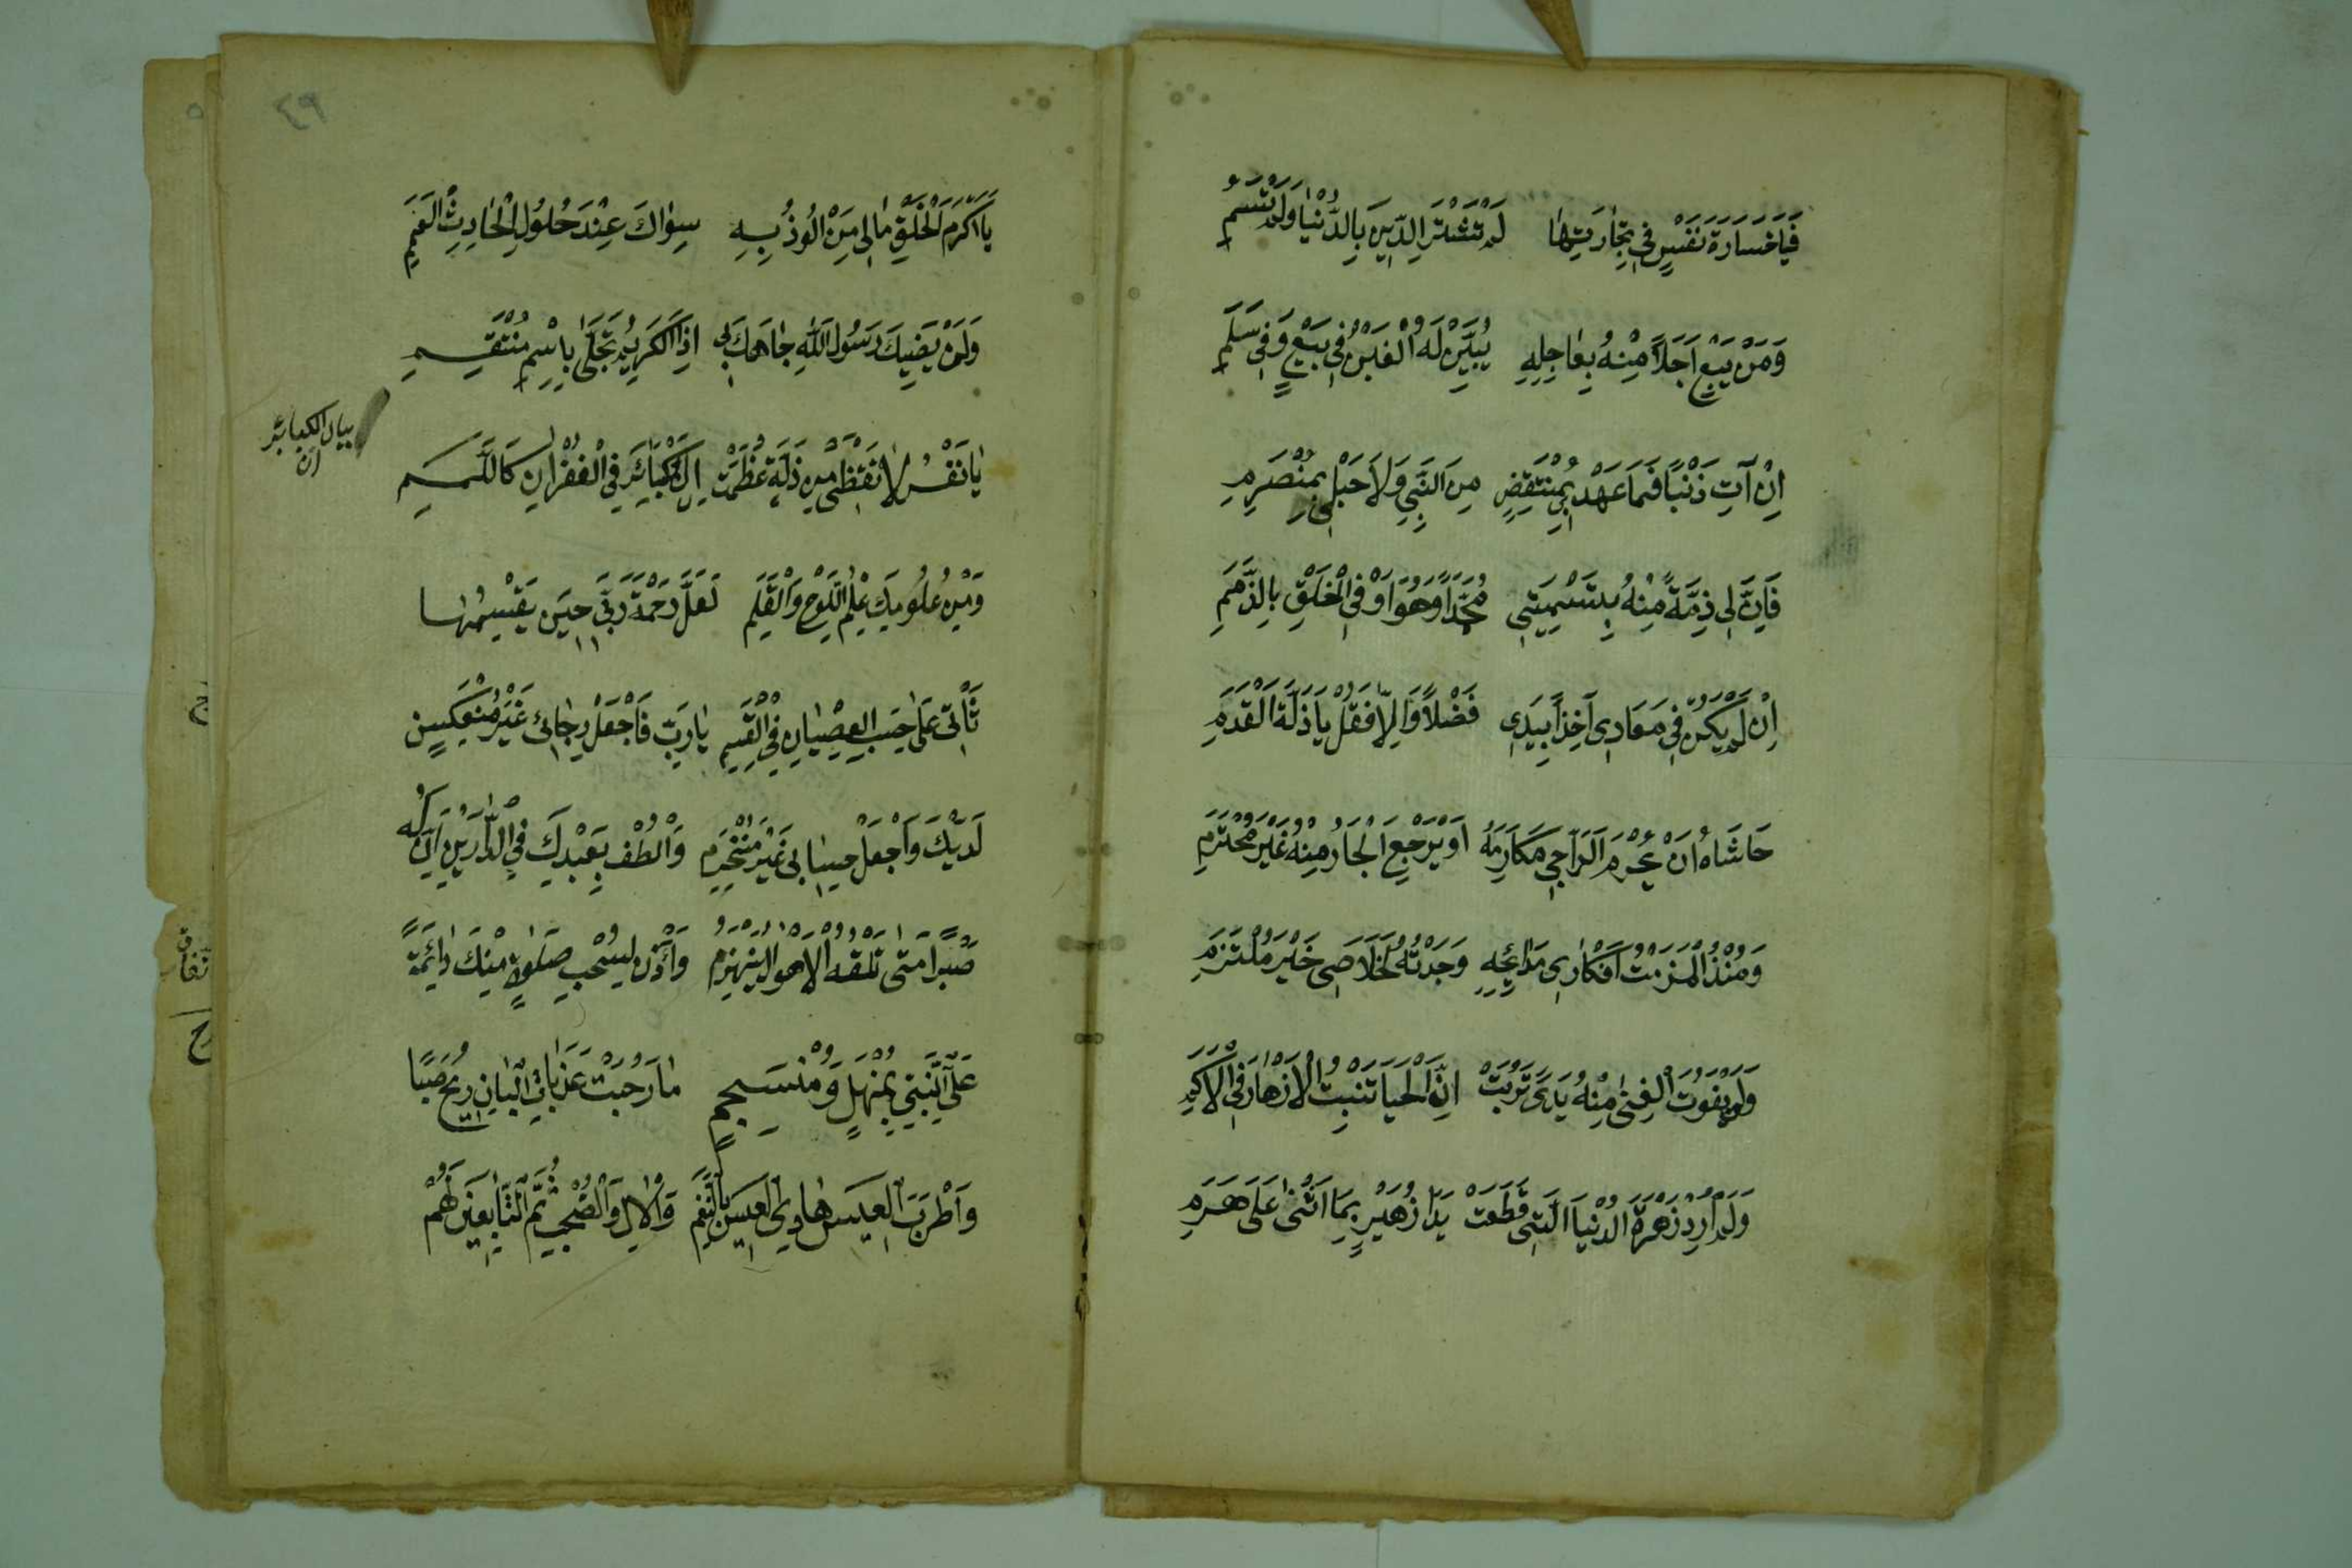 فَيَا خَسَارَةَ نَفْسٍ فِي تِجَارَتِهَا لَمْ تَشْتَرِ الدِّينَ بِالدُّنْيَا وَلَمْ تَسُمِ
وَمَنْ يَبِعْ اٰجِلاً مِنْهُ بِعَاجِلِهِ يَبِنْ لَهُ الْغَبْنُ فِي بَيْعٍ وَفِي سَلَمِ
اِنْ آتِ ذَنْبًا فَمَا عَهْدِي بِمُنْتَقِضٍ مِنَ النَّبِيِّ وَلَا حَبْلِي بِمُنْصَرِمِ
فَاِنَّ لِي ذِمَّةً مِنْهُ بِتَسْمِيَتِي مُحَمَّدًا وَهُوَ اَوْفَى الْخَلْقِ بِالذِّمَمِ
اِنْ لَمْ يَكُنْ فِي مَعَادِي آخِذًا بِيَدِي فَضْلاً وَاِلاَّ فَقُلْ يَا زَلَّةَ الْقَدَمِ
حَاشَاهُ اَنْ يُحْرِمَ الرَّاجِي مَكَارِمَهُ اَوْ يَرْجِعَ الْجَارُ مِنْهُ غَيْرَ مُحْتَرَمِ
وَمُنْذُ الْزَمْتُ اَفْكَارِي مَدَائِحَهُ وَجَدْتُهُ لِخَلَاصِي خَيْرَ مُلْتَزِمِ
وَلَنْ يَفُوتَ الْغِنٰى مِنْهُ يَدًا تَرِبَتْ اِنَّ الْحَيَا تُنْبِتُ الْاَزْهَارَ فِي الْاَكَمِ
وَلَمْ اُرِدْ زَهْرَةَ الدُّنْيَا الَّتِي قَطَعَتْ يَدَا زُهَيْرٍ بِمَا اَثْنٰى عَلَى هَرَمِ
٤٩
يَا اَكْرَمَ الْخَلْقِ مَا لِي مَنْ اَلُوذُ بِهِ سِوَاكَ عِنْدَ حُلُولِ الْحَادِثِ الْعَمِمِ
وَلَنْ يَضِيقَ رَسُولَ اللهِ جَاهُكَ بِي اِذَا الْكَرِيمُ تَجَلَّى بِاسْمِ مُنْتَقِمِ
يَا نَفْسُ لَا تَقْنَطِي مِنْ زَلَّةٍ عَظُمَتْ اِنَّ الْكَبَائِرَ فِي الْغُفْرَانِ كَاللَّمَمِ
بيان الكبائر
وَمِنْ عُلُومِكَ عِلْمَ اللَّوْحِ وَالْقَلَمِ لَعَلَّ رَحْمَةَ رَبِّي حِينَ يَقْسِمُهَا
تَأْتِي عَلَى حَسَبِ الْعِصْيَانِ فِي الْقِسَمِ يَا رَبِّ فَاجْعَلْ رَجَائِي غَيْرَ مُنْعَكِسٍ
لَدَيْكَ وَاجْعَلْ حِسَابِي غَيْرَ مُنْخَرِمِ وَالْطُفْ بِعَبْدِكَ فِي الدَّارَيْنِ اِنَّ لَهُ
صَبْرًا مَتٰى تَلْقَهُ الْاَهْوَالُ يَنْهَزِمُ وَأْذَنْ لِسُحْبِ صَلٰوةٍ مِنْكَ دَائِمَةً
عَلَى النَّبِيِّ بِمُنْهَلٍ وَمُنْسَجِمٍ مَا رَنَّحَتْ عَذَبَاتِ الْبَانِ رِيحُ صَبًا
وَاَطْرَبَ الْعِيسَ حَادِي الْعِيسِ بِالنَّغَمِ وَالْآلِ وَالصَّحْبِ ثُمَّ التَّابِعِينَ لَهُمْ